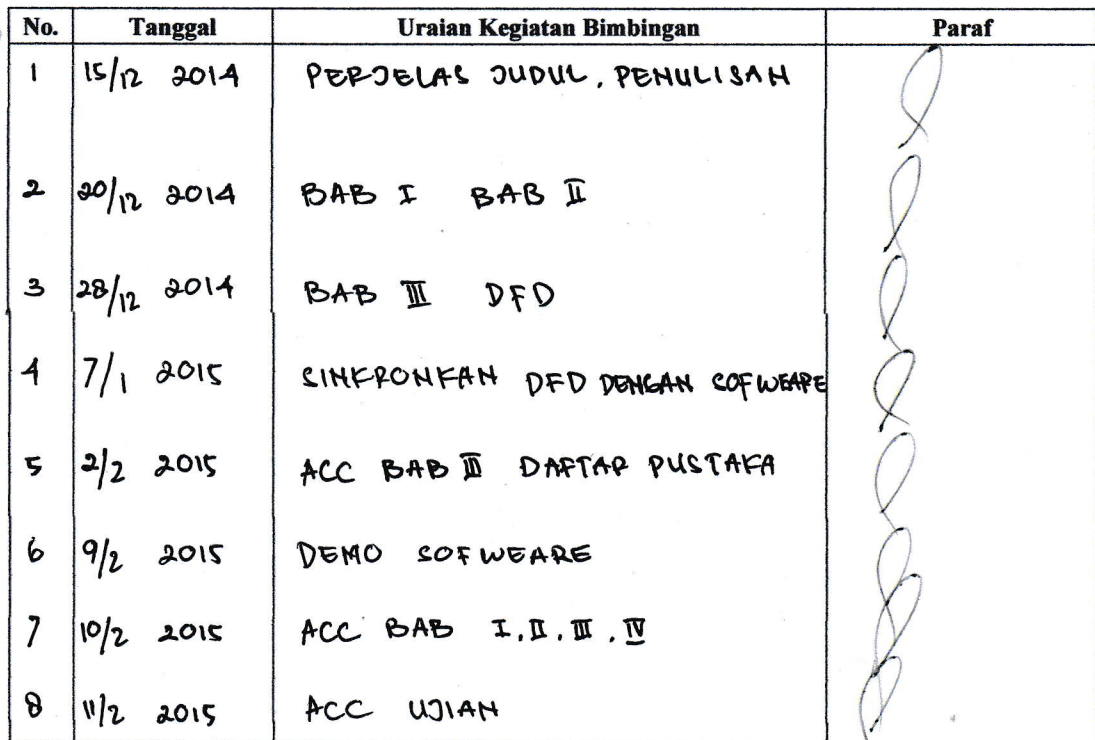 No. Tanggal Uraian Kegiatan Bimbingan Paraf
1 15/12 2014 PERJELAS JUDUL, PENULISAN
2 20/12 2014 BAB I BAB II
3 28/12 2014 BAB III DFD
4 7/1 2015 SINKRONKAN DFD DENGAN SOFWEARE
5 2/2 2015 ACC BAB III DAFTAR PUSTAKA
6 9/2 2015 DEMO SOFWEARE
7 10/2 2015 ACC BAB I, II, III, IV
8 11/2 2015 ACC UJIAN